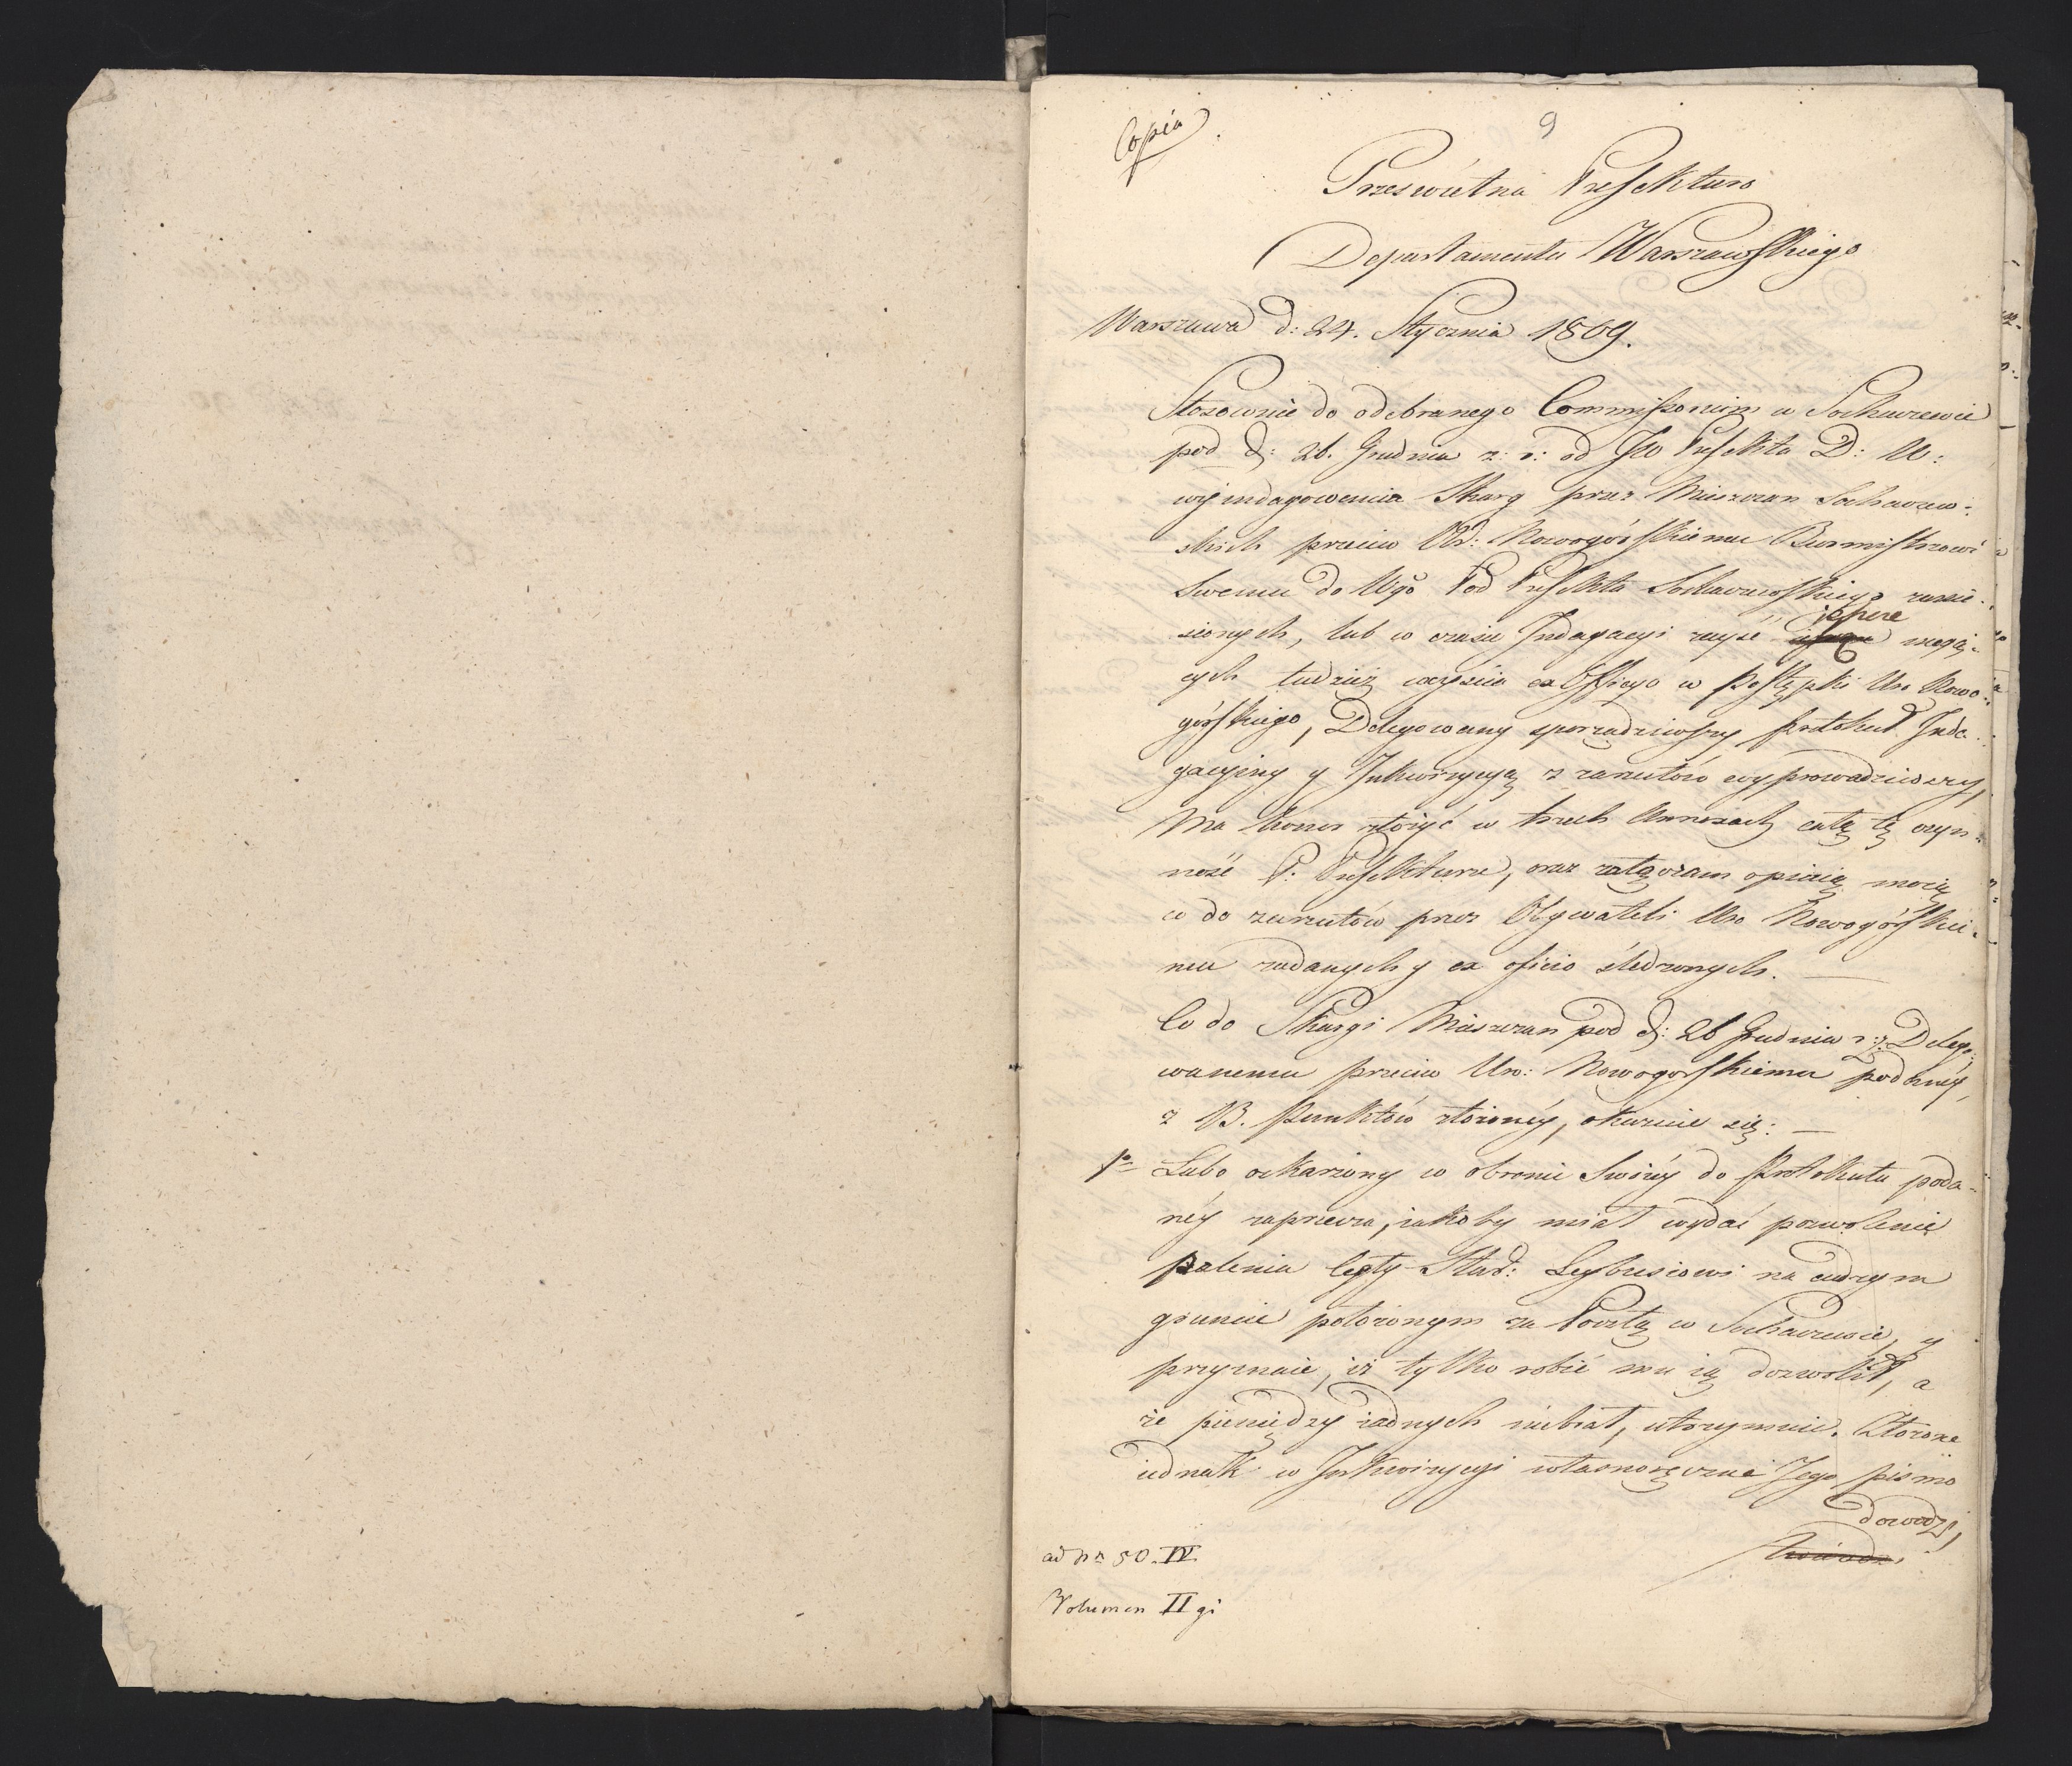 Copia
9
Prześwietna Prefekturo
Departamentu Warszawskiego
Warszawa d: 24. Stycznia 1809.
Stosownie do odebranego Commissorium w Sochaczewie
pod d: 26. Grudnia z: r: od JW Prefekta D: W:
wyindagowania Skarg przez Mieszczan Sochaczew-
skich przeciw Ur: Nowogórskiemu Burmistrzowi
Swemu do Wgo Pod Prefekta Sochaczewskiego zanie-
sionych, lub w czasie Indagacyi zayść ieszcze mogą-
cych tudzież weyścia ex Officjo w Postępki Uro Nowo-
górskiego, Delegowany sporządziwszy protokuł Inda-
gacyiny y Inkwizycyą z zarzutów wyprowadziwszy,
Ma honor złożyć w trzech Annexach całą tę czyn-
ność P. Prefekturze, oraz załączam opinią moią
co do zarzutów przez Obywateli Uro Nowogórskie-
mu zadanych y ex oficio śledzonych.
Co do Skargi Mieszczan pod d: 26 Grudnia z: r: Delego-
wanemu przeciw Uro: Nowogorskiemu podanéy,
z 13. Punktów złożonéy, okazuie się:
1o Lubo oskarżony w obronie Swoiéy do Protokułu poda-
néy zaprzecza, iakoby miał wydać pozwolenie
palenia Cegły Star: Leybusiowi na cudzym
gruncie położonym za Pocztą w Sochaczewie, y
przyznaie, iż tylko robić mu ią dozwolił, a
że pieniędzy żadnych niebrał, utrzymuie. Złożone
iednak w Inkwizycyi własnoręczne Jego pismo
dowodzi,
ad Nr 50. IV.
Volumen II gi